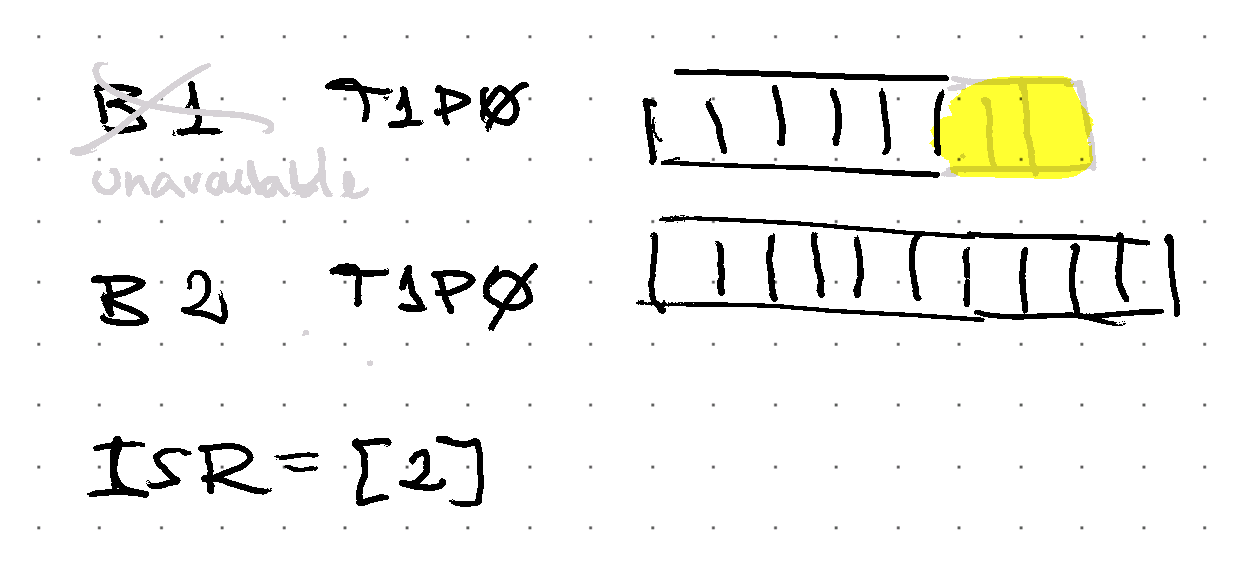 B 1 T1PØ
unavailable
B 2 T1PØ
ISR = [2]